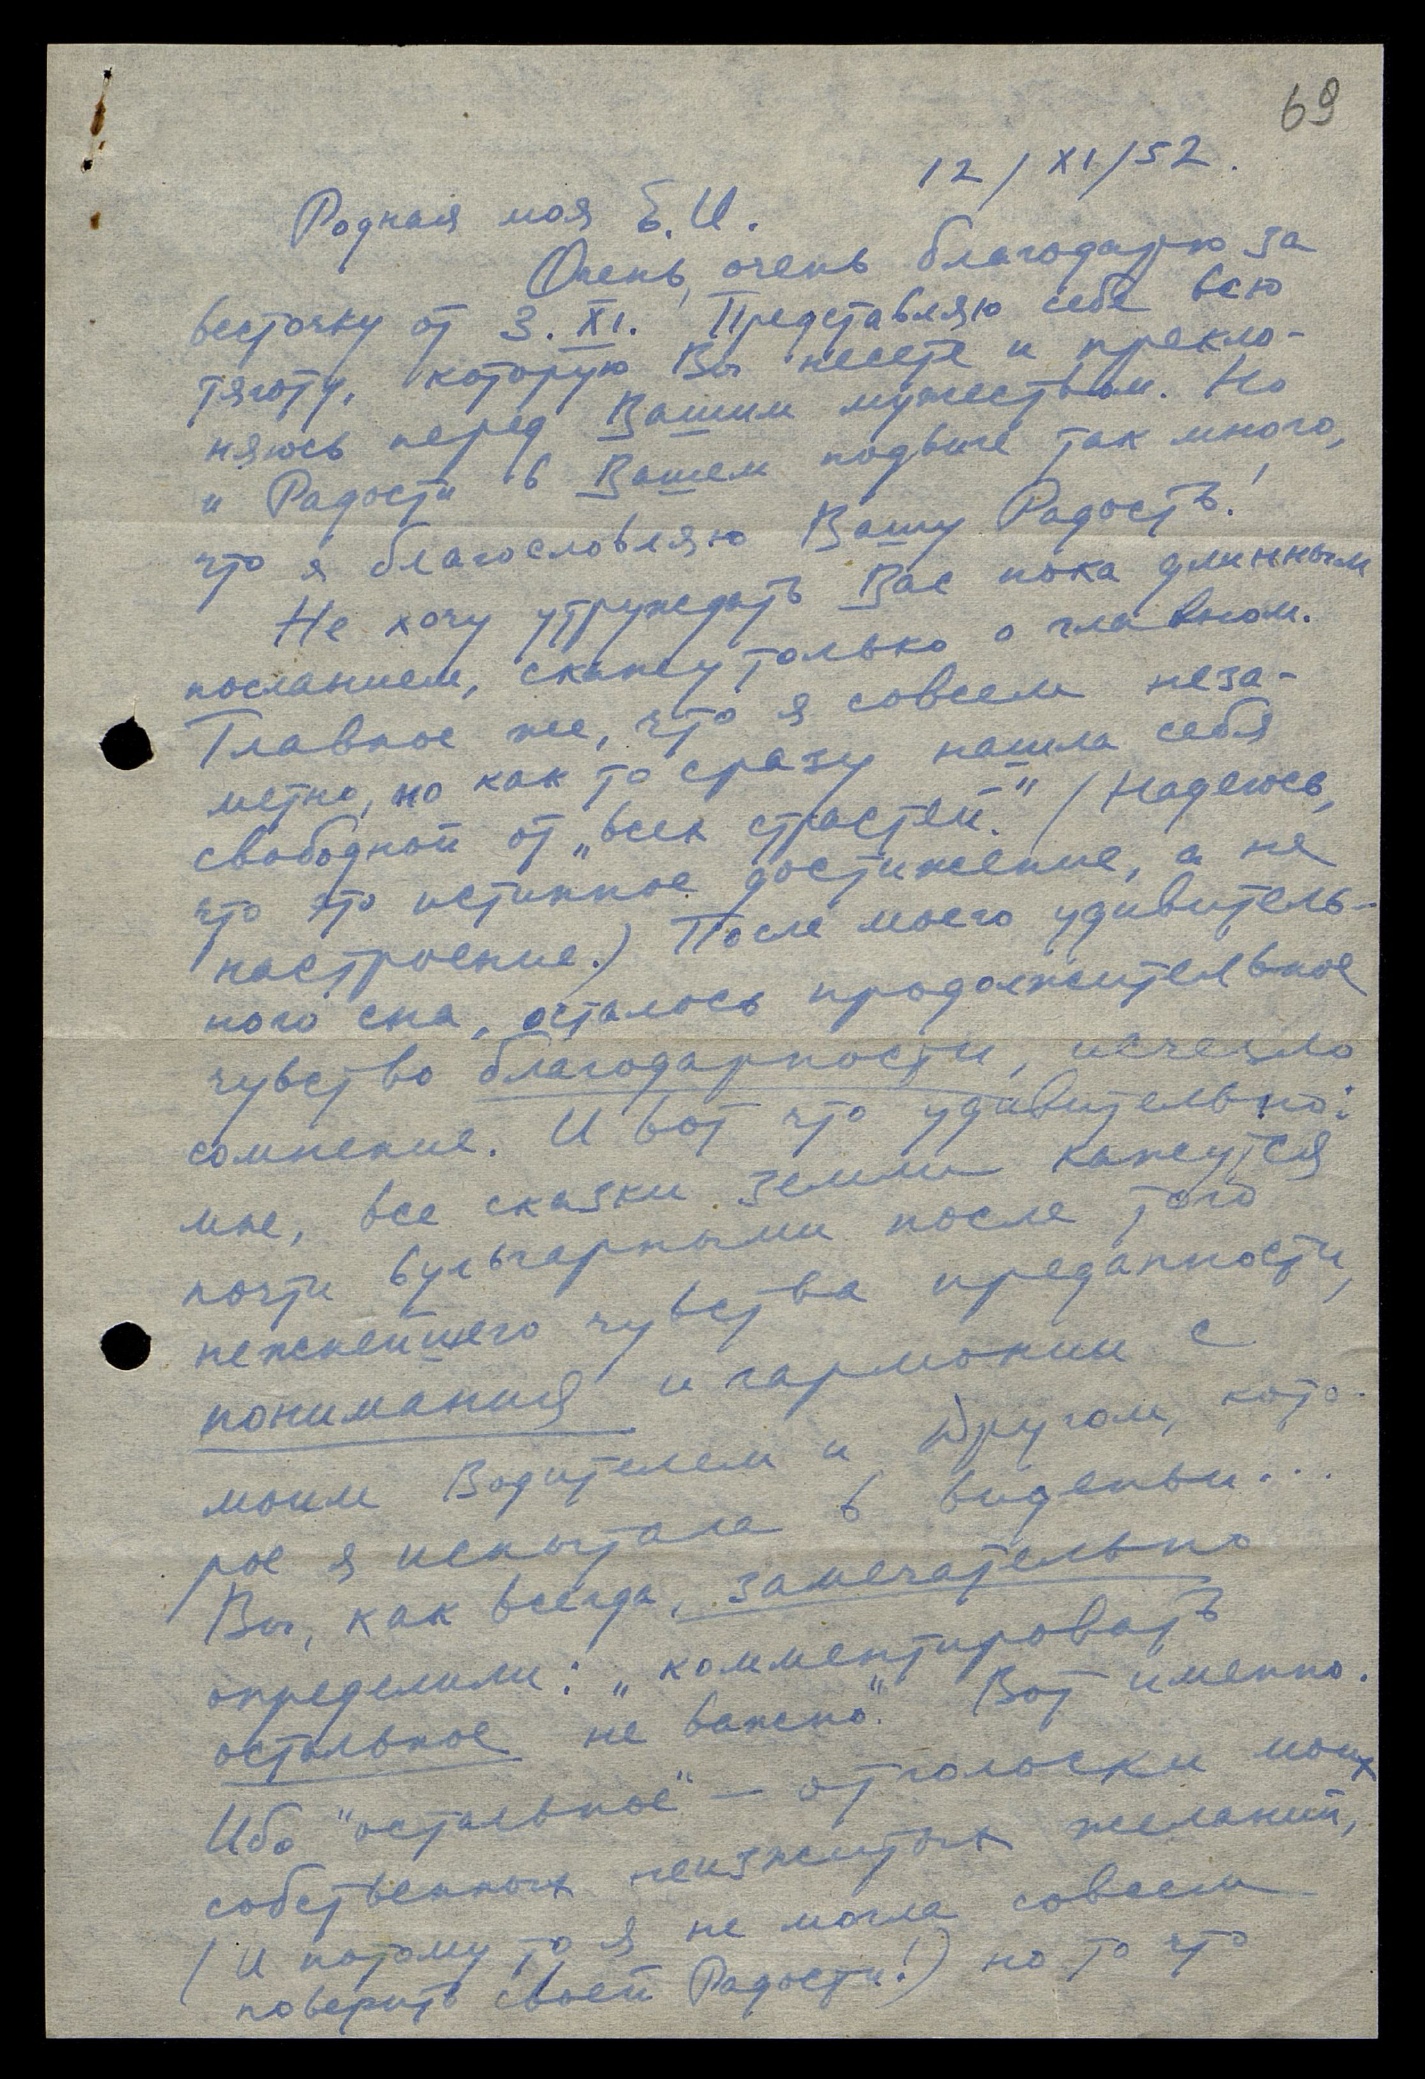 69
12/XI/52.
Родная моя Е.И.
Очень, очень благодарю за
весточку от 3.XI. Представляю себе всю
тяготу, которую Вы несете и прекло-
няюсь перед Вашим мужеством. Но
и Радости в Вашем подвиге так много,
что я благословляю Вашу Радость!
Не хочу утруждать Вас пока длинным
посланием, скажу только о главном.
Главное же, что я совсем неза-
метно, но как то сразу нашла себя
свободной от „всех страстей." (Надеюсь,
что это истинное достижение, а не
настроение.) После моего удивитель-
ного сна, осталось продолжительное
чувство благодарности, исчезло
сомнение. И вот что удивительно:
мне, все сказки земли кажутся
почти вульгарными после того
нежнейшего чувства преданности,
понимания и гармонии с
моим Водителем и Другом, кото-
рое я испытала в виденьи...
Вы, как всегда, замечательно
определили: „комментировать
остальное не важно". Вот именно.
Ибо "остальное" — отголоски моих
собственных неизжитых желаний,
(И потому то я не могла совсем
поверить своей Радости!) но то что